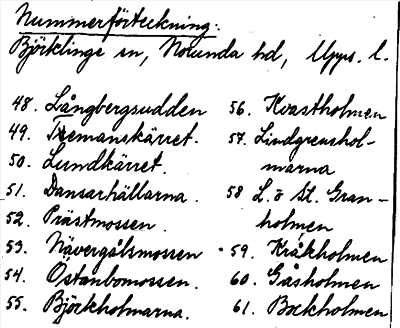 Nummerförteckning:
Björklinge sn, Norunda hd, Upps. l.
48. Långbergsudden
49. Tremanskärret.
50. Lundkärret.
51. Dansarhällarna.
52. Prästmossen.
53. Nävergålsmossen
54. Östanbomossen.
55. Björkholmarna.
56. Kvastholmen
57. Lindgreushol-
marna
58 L. o St. Gran-
holmen
59. Kråkholmen
60. Gåsholmen
61. Bockholmen